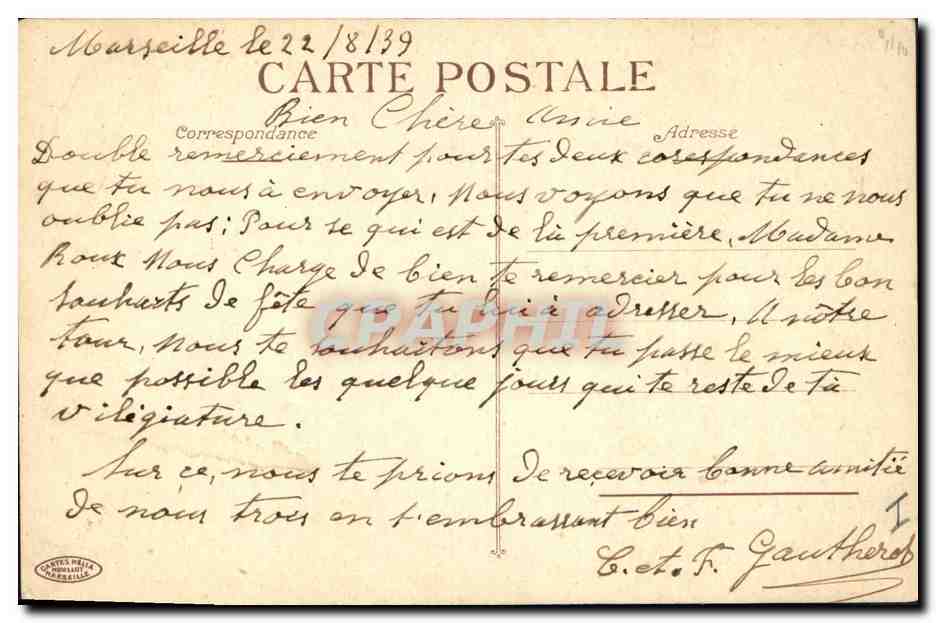 Marseille le 22/8/39
CARTE POSTALE
Bien Chère Amie
Correspondance
Adresse
Double remerciement pour tes deux corespondances
que tu nous à envoyer, Nous voyons que tu ne nous
oublie pas; Pour se qui est de là première, Madame
Roux Nous Charge de bien te remercier pour les bon
souhaits de fête que tu lui à adresser, A nôtre
CPAPHIL
tour, Nous te souhaitons que tu passe le mieux
que possible les quelque jours qui te reste de tà
vilégiature.
Sur ce, nous te prions de reçevoir bonne amitié
de nous trois en t'embrassant bien
I
C. et. F. Gautherot
CARTES HELIA
MARSEILLE